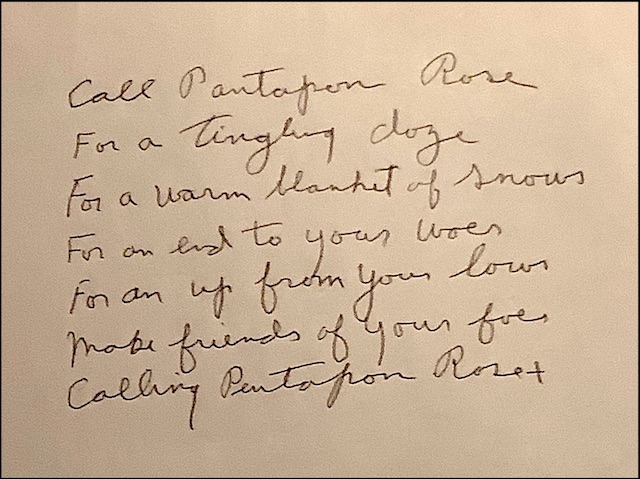 Call Pantapon Rose
For a tingling doze
For a warm blanket of snows
For an end to your woes
For an up from your lows
Make friends of your foes
Calling Pantapon Rose+